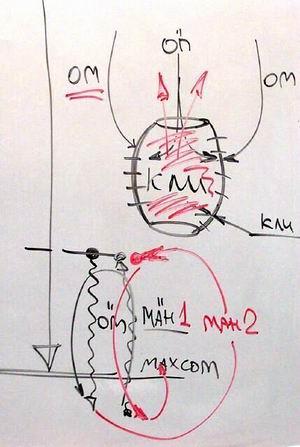 оп̈
ом
ом
кли
кли
ом̈
МӒН 1
МАН 2
МАХСОМ